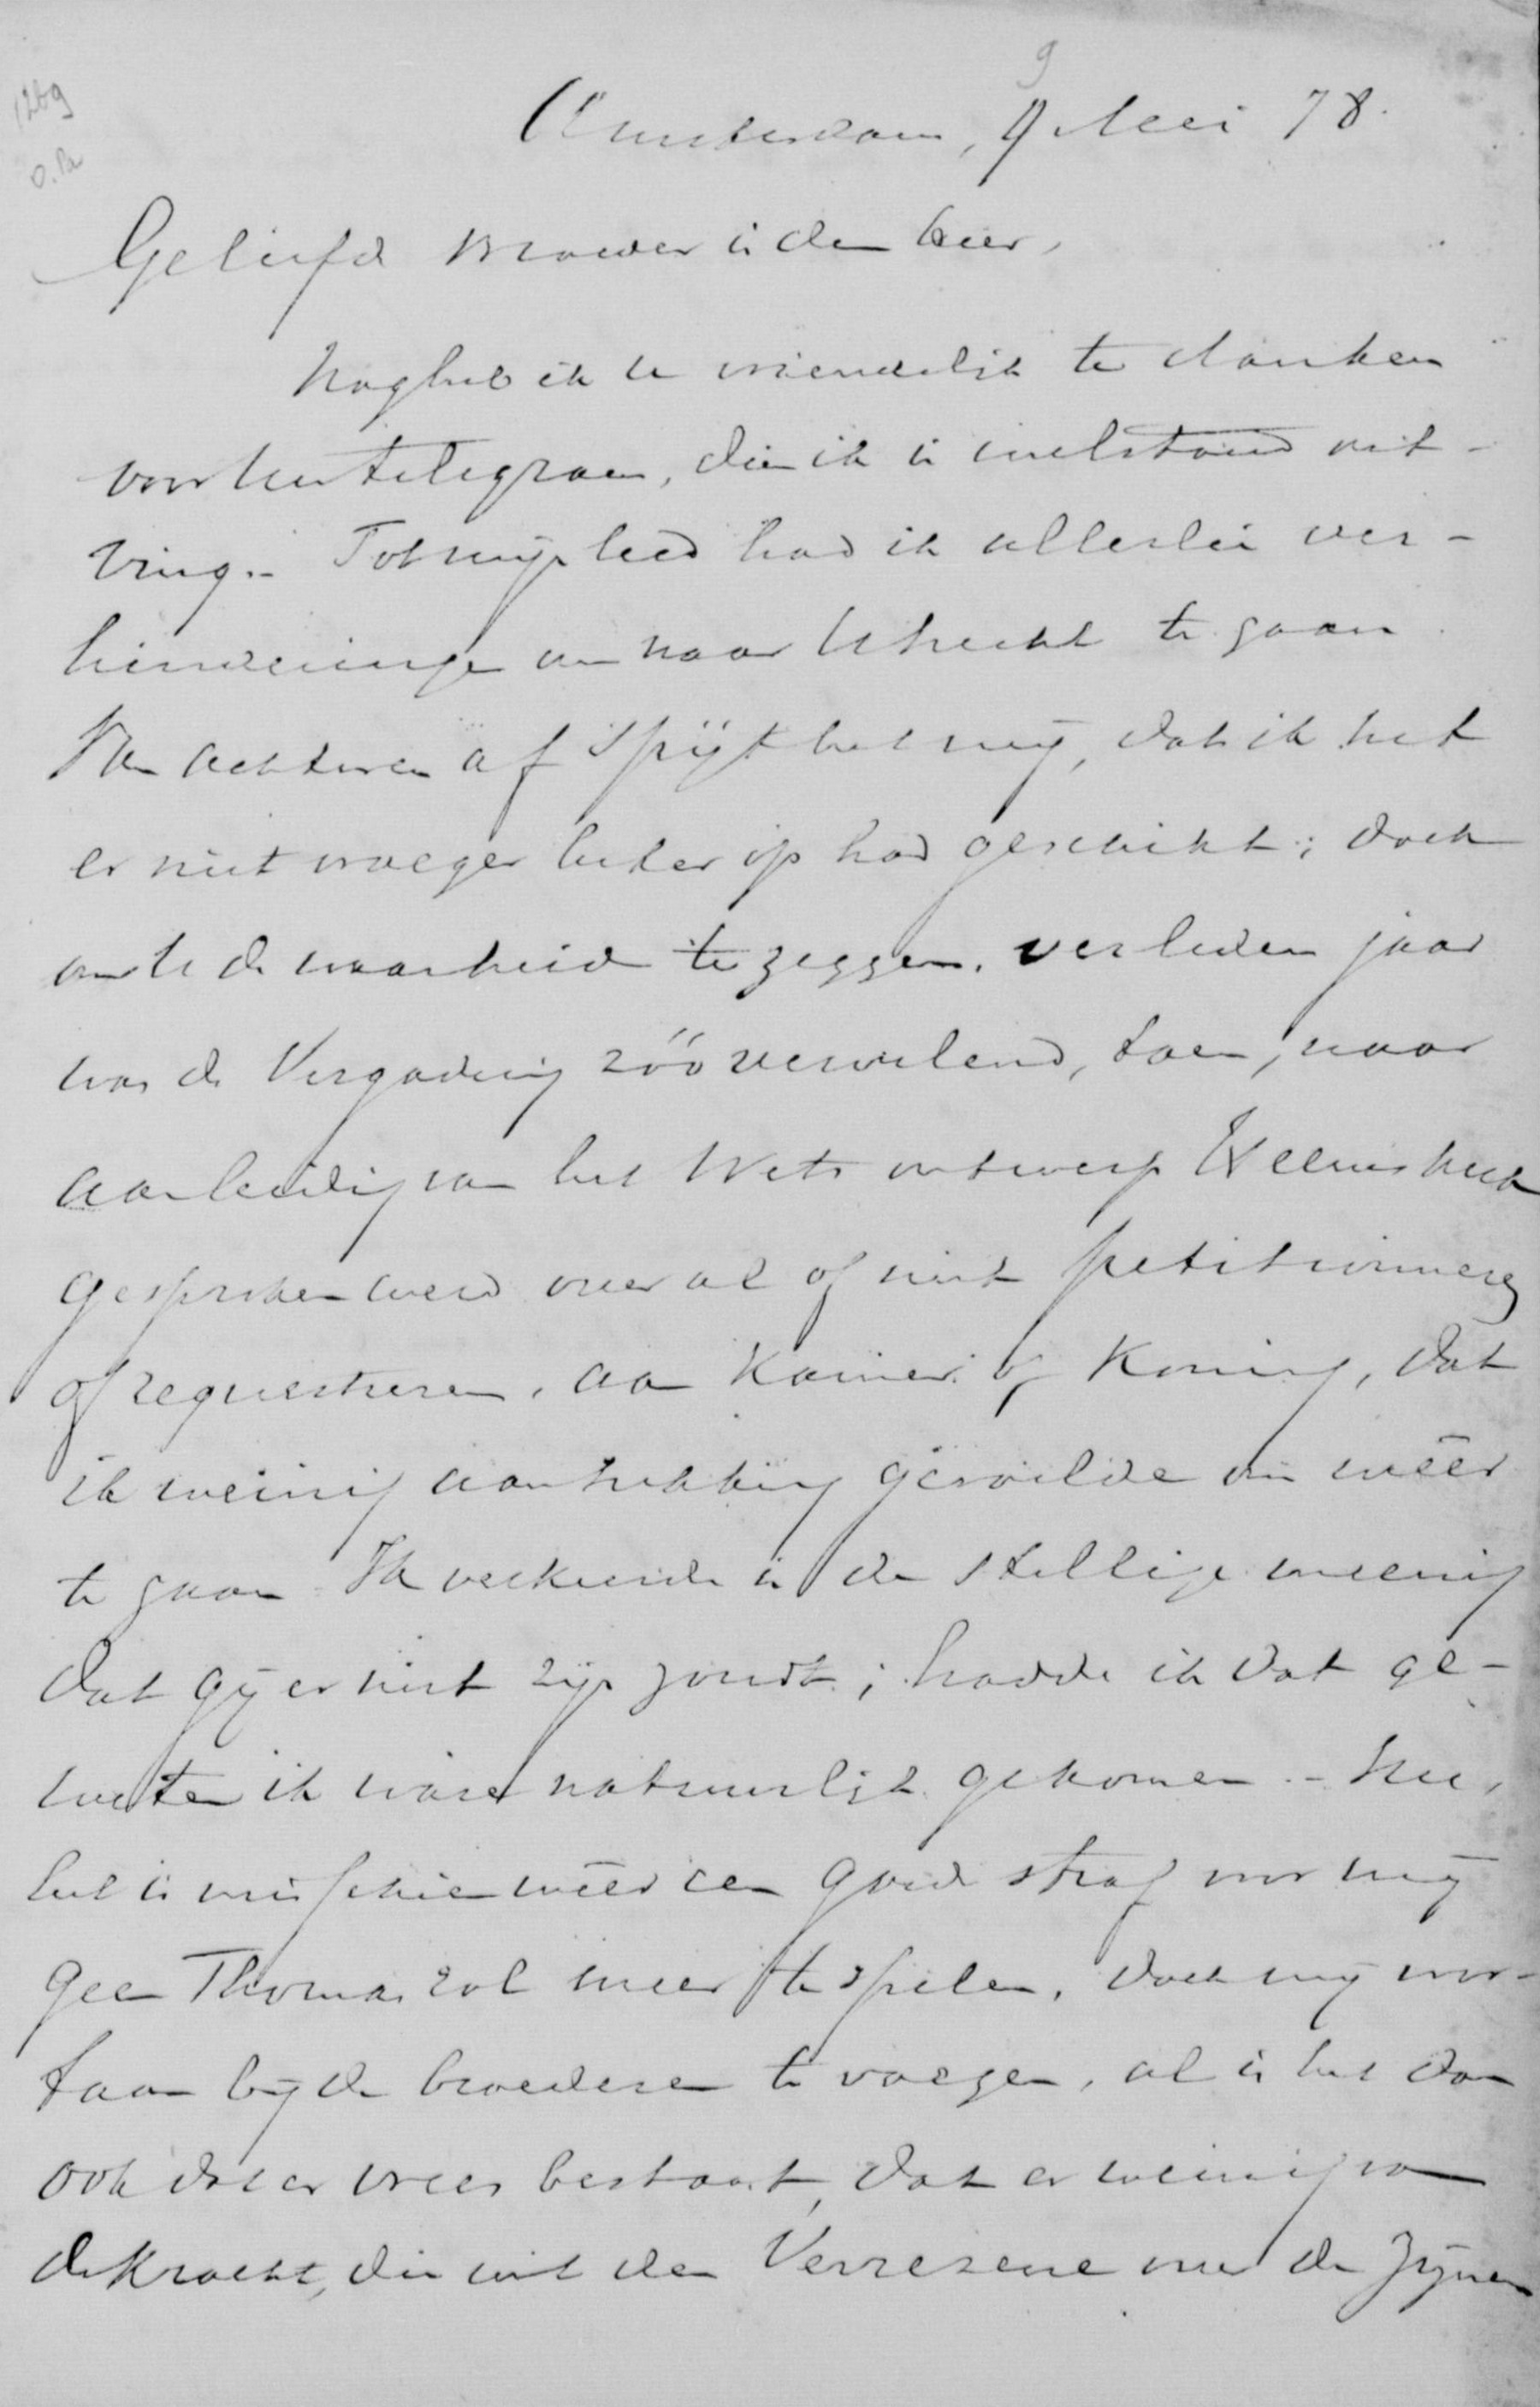 1269
O. Br
9
Amsterdam, 9 Mei 78.
Geliefde Broeder in den Heer,
Nog heb ik U vriendelijk te danken
voor Uw telegram, dien ik in welstand ont-
ving. - Tot mijn leed had ik allerlei ver-
hinderingen om naar Utrecht te gaan.
Van achteren af spijt het mij, dat ik het
er niet vroeger beter op had geschikt; doch
om U de waarheid te zeggen, verleden jaar
was de Vergadering zóó vervelend, toen, naar
aanleiding van het Wetsontwerp Heemskerk
gesproken werd over al of niet petitionneren
of requestreren, aan Kamer of Koning, dat
ik weinig aantrekking gevoelde om wéér
te gaan. Ik verkeerde in de stellige meening
dat gij er niet zijn zoudt; hadde ik dat ge-
weten ik ware natuurlijk gekomen. - Nu,
het is misschien wéér een goede straf voor mij
geen Thomas rol meer te spelen, doch mij voor-
taan bij de broederen te voegen, al is het dan
ook dat er vrees bestaat, dat er weinig van
de Kracht, die uit den Verrezene over de Zijnen